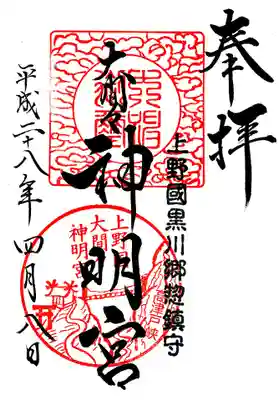 奉拝
上野國黒川郷惣鎮守
大間々
神明宮
平成二十八年四月八日
上野
大間々
神明宮
高津戸峡